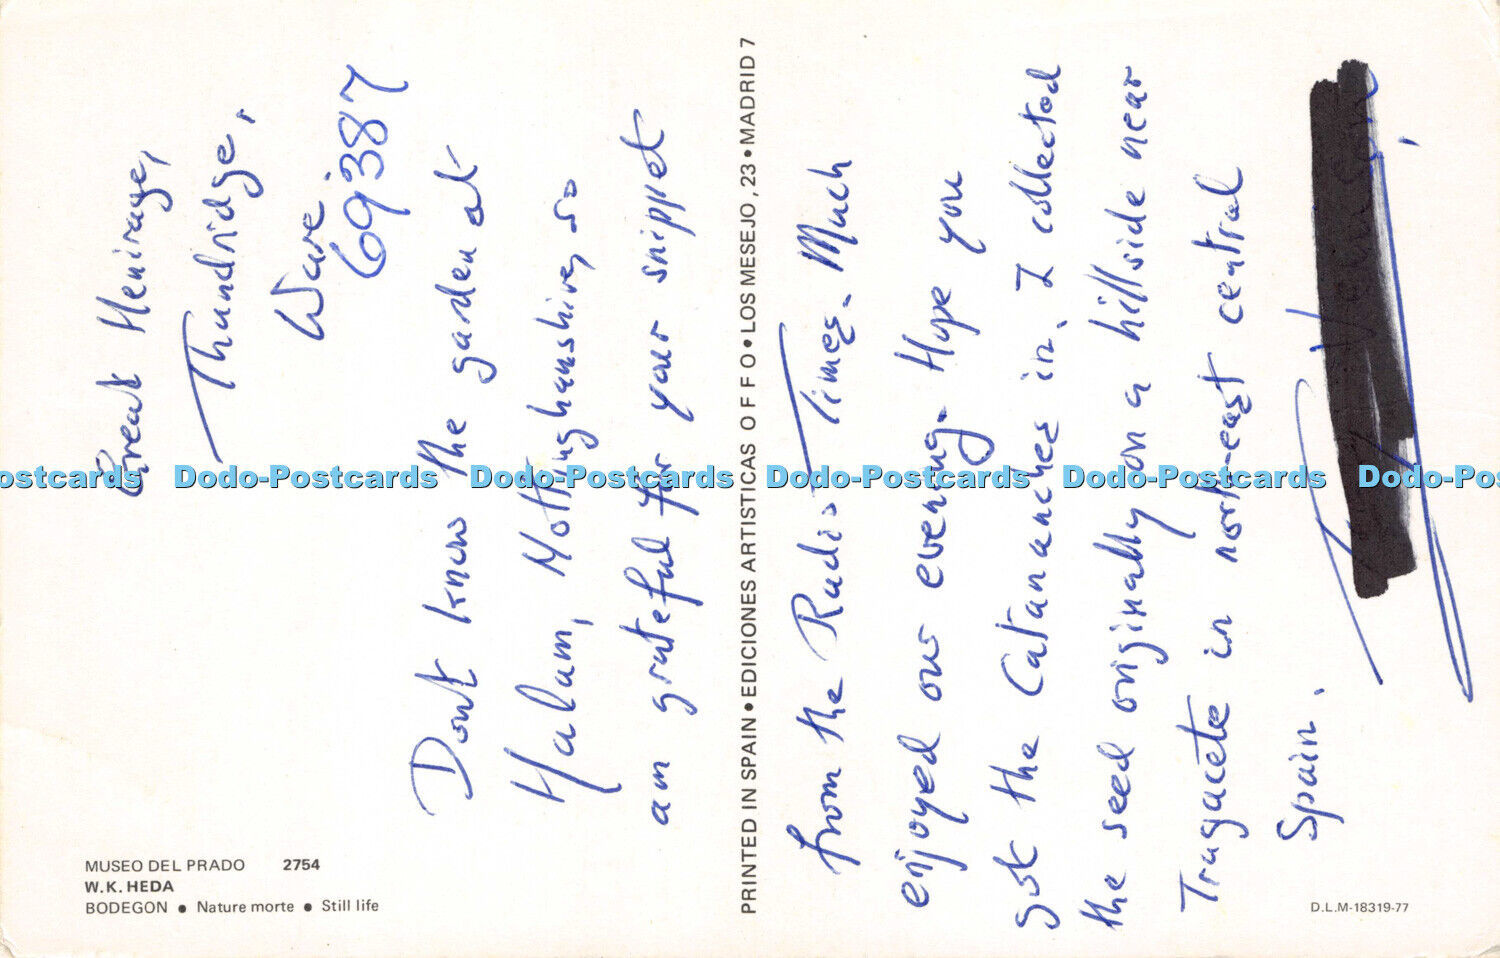 Great Henirage,
Thundridge,
Ware.
6·9·387
Don't know the garden at
Halam, Nottinghamshire, so
am grateful for your snippet
from the Radio Times. Much
enjoyed our evening. Hope you
got the Catananches in. I collected
the seed originally on a hillside near
Tragacete in north-east central
Spain.
PRINTED IN SPAIN • EDICIONES ARTISTICAS O F F O • LOS MESEJO, 23 • MADRID 7
MUSEO DEL PRADO 2754
W. K. HEDA
BODEGON • Nature morte • Still life
D.L.M-18319-77
Dodo-Postcards Dodo-Postcards Dodo-Postcards Dodo-Postcards Dodo-Postcards Dodo-Pos